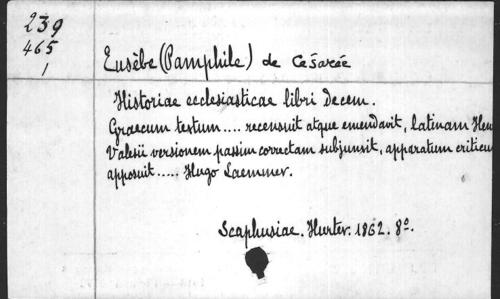 239
465
1
Eusèbe (Pamphile) de Césarée
Historiae ecclesiasticae libri decem.
Graecum textum .... recensuit atque emendavit, latinam Hen
Valesii versionem passim correctam subjunxit, apparatum criticum
apposuit ..... Hugo Laemmer.
Scaphusiae. Hurter. 1862. 8°.